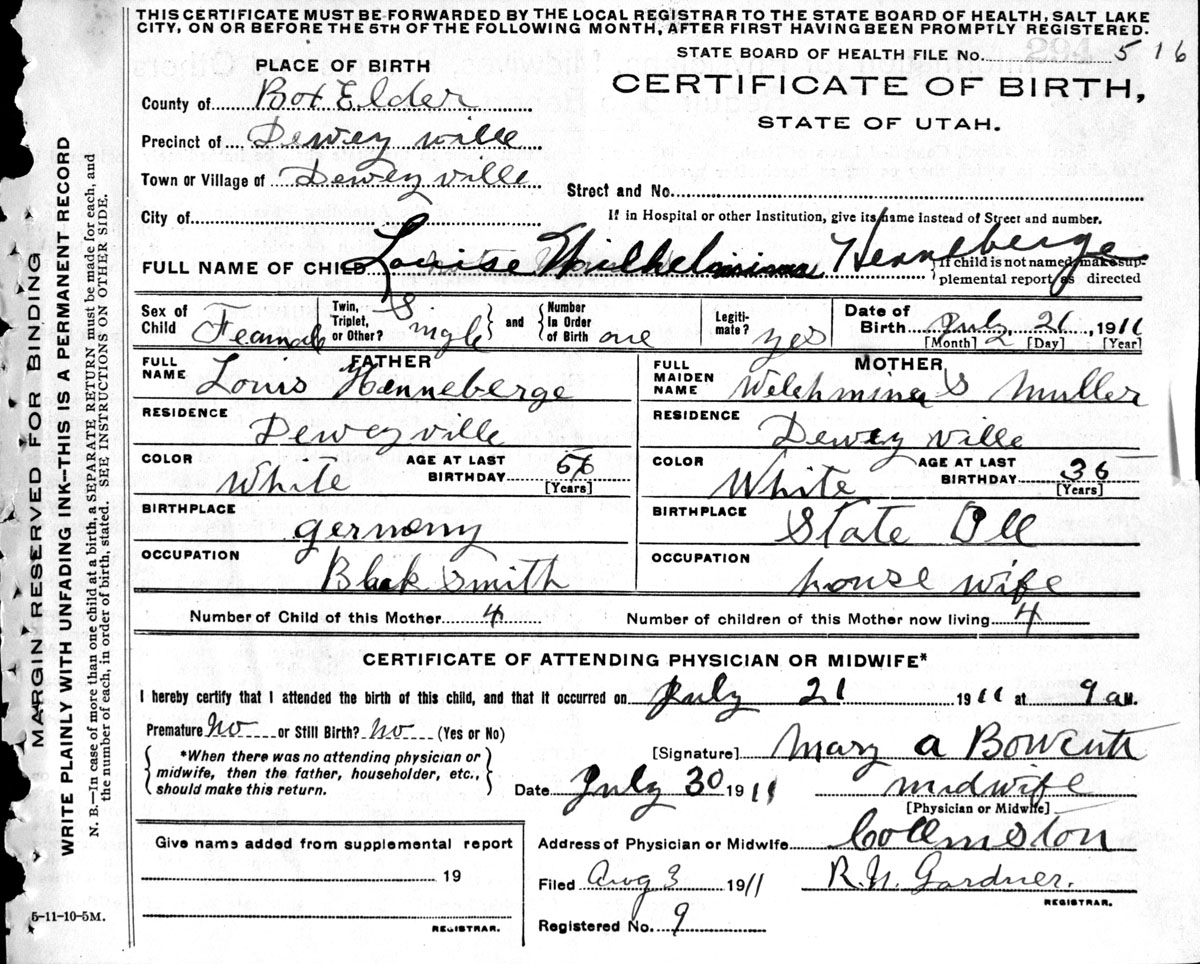 THIS CERTIFICATE MUST BE FORWARDED BY THE LOCAL REGISTRAR TO THE STATE BOARD OF HEALTH, SALT LAKE
CITY, ON OR BEFORE THE 5TH OF THE FOLLOWING MONTH, AFTER FIRST HAVING BEEN PROMPTLY REGISTERED.
STATE BOARD OF HEALTH FILE No. 516
CERTIFICATE OF BIRTH,
STATE OF UTAH.
PLACE OF BIRTH
County of Box Elder
Precinct of Deweyville
Town or Village of Deweyville
Street and No.
City of
If in Hospital or other Institution, give its name instead of Street and number.
FULL NAME OF CHILD Louise Wilhelmina Henneberge
If child is not named, make sup-
plemental report as directed
Sex of Child Feamale Twin, Triplet, or Other? Single and Number In Order of Birth one Legiti-mate? yes Date of Birth July 21, 1911
[Month] [Day] [Year]
FATHER
FULL NAME Louis Henneberge
RESIDENCE Deweyville
COLOR White AGE AT LAST BIRTHDAY
[Years]
BIRTHPLACE germony
OCCUPATION Black Smith
MOTHER
FULL MAIDEN NAME Welehmina S Muller
RESIDENCE Deweyville
COLOR White AGE AT LAST BIRTHDAY 36
[Years]
BIRTHPLACE State Ill
OCCUPATION house wife
Number of Child of this Mother 4 Number of children of this Mother now living 4
CERTIFICATE OF ATTENDING PHYSICIAN OR MIDWIFE*
I hereby certify that I attended the birth of this child, and that it occurred on July 21 1911 at 9 a M.
Premature No or Still Birth? No (Yes or No)
*When there was no attending physician or
midwife, then the father, householder, etc.,
should make this return.
[Signature] Mary a Bowcutt
Date July 30 1911 midwife
[Physician or Midwife]
Give name added from supplemental report
19
REGISTRAR.
Address of Physician or Midwife
Filed Aug 3 1911 R.N. Gardner.
REGISTRAR.
Registered No. 9
5-11-10-5M.
MARGIN RESERVED FOR BINDING
WRITE PLAINLY WITH UNFADING INK—THIS IS A PERMANENT RECORD
N. B.—In case of more than one child at a birth, a SEPARATE RETURN must be made for each, and
the number of each, in order of birth, stated. SEE INSTRUCTIONS ON OTHER SIDE.